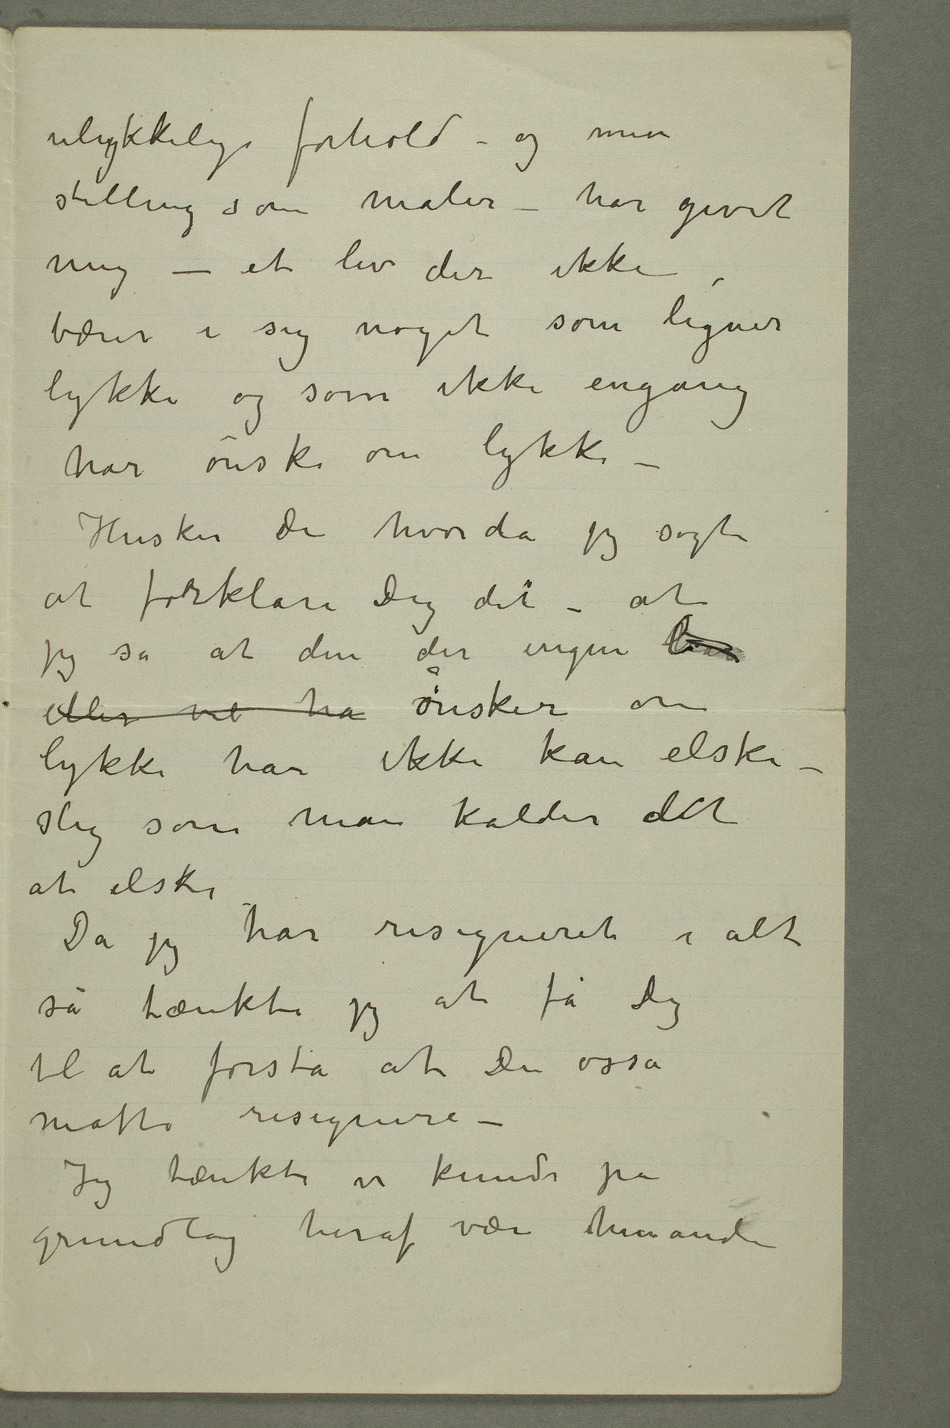 ulykkelige forhold – og min
stilling som maler – har givet
mig – et liv der ikke
bærer i sig noget som ligner
lykke og som ikke engang
har ønske om lykke –
Husker Du hvorda jeg søgte
at forklare Dig det – at
jeg sa at den der ingen har
eller vil ha ønsker om
lykke har ikke kan elske –
slig som man kalder det
at elske
Da jeg har resigneret i alt
så tænkte jeg at få Dig
til at forstå at Du osså
måtte resignere –
Jeg tænkte vi kunde på
grundlag heraf være hinanden